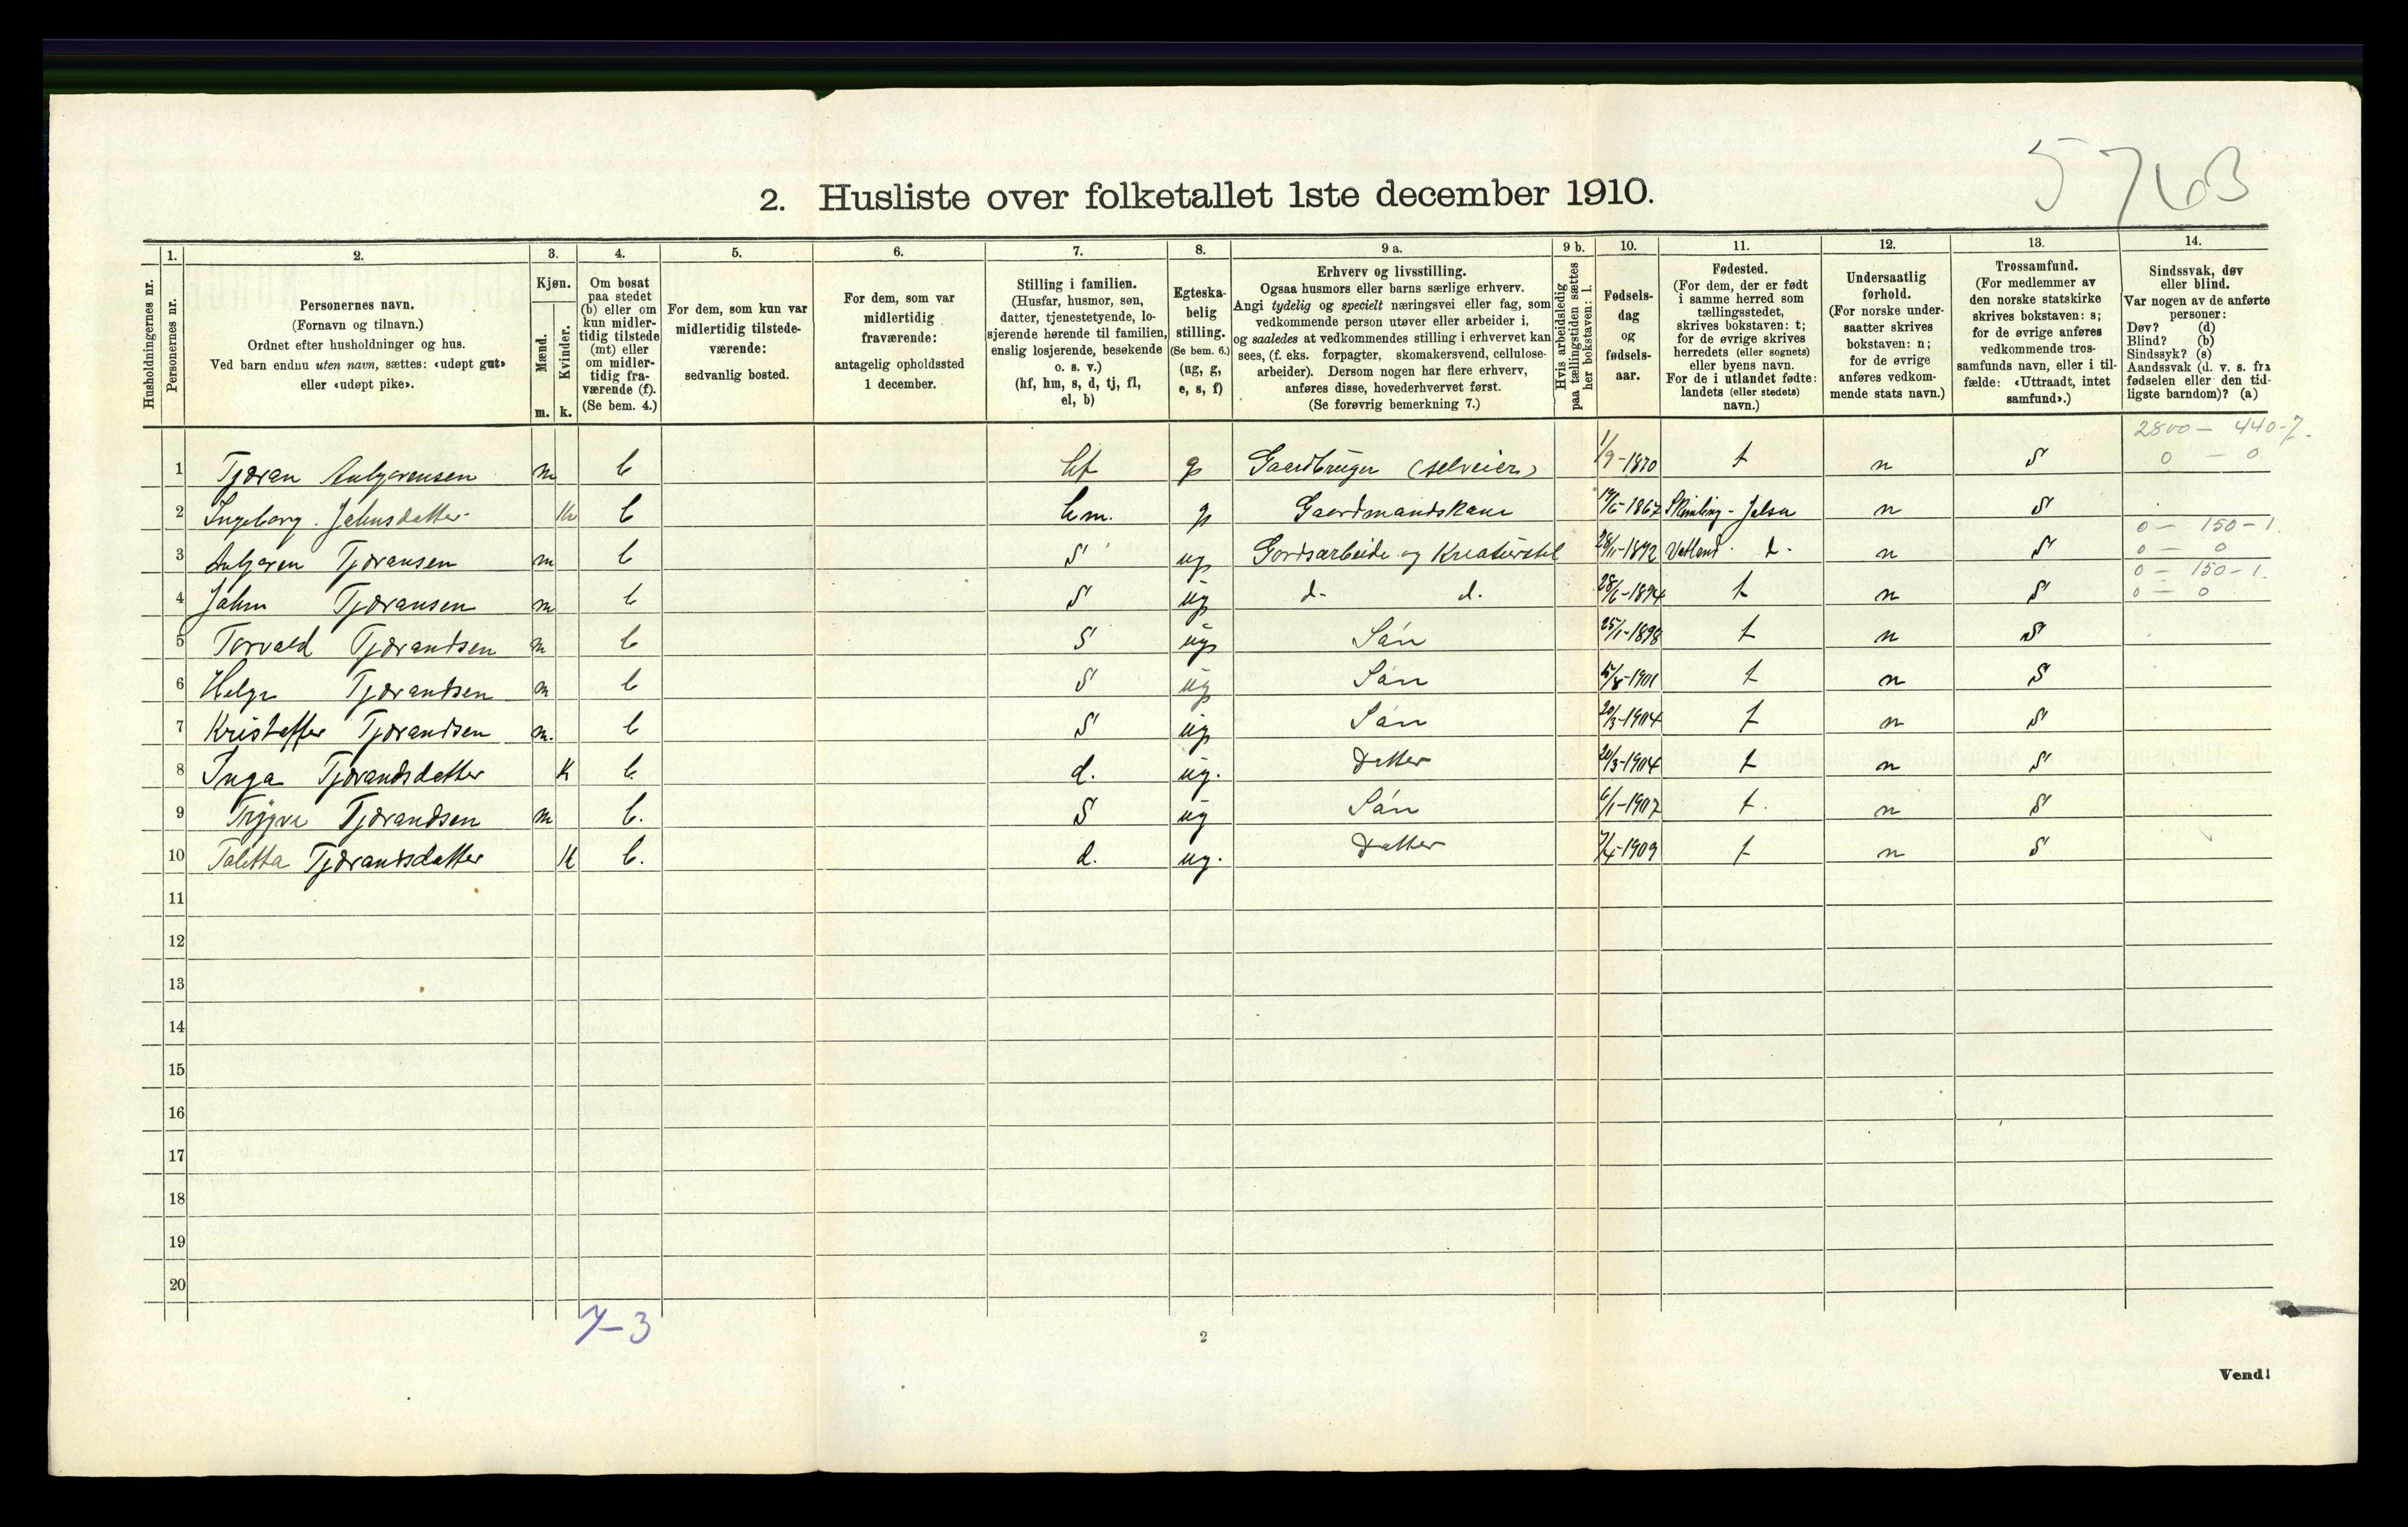 5763
2. Husliste over folketallet 1ste december 1910.
Husholdningernes nr.
1. Personernes nr.
2. Personernes navn.
(Fornavn og tilnavn.)
Ordnet efter husholdninger og hus.
Ved barn endnu uten navn, sættes: «udøpt gut»
eller «udøpt pike».
3. Kjøn.
Mænd. m.
Kvinder. k.
4. Om bosat
paa stedet
(b) eller om
kun midler-
tidig tilstede
(mt) eller
om midler-
tidig fra-
værende (f).
(Se bem. 4.)
5. For dem, som kun var
midlertidig tilstede-
værende:
sedvanlig bosted.
6. For dem, som var
midlertidig
fraværende:
antagelig opholdssted
1 december.
7. Stilling i familien.
(Husfar, husmor, søn,
datter, tjenestetyende, lo-
sjerende hørende til familien,
enslig losjerende, besøkende
o. s. v.)
(hf, hm, s, d, tj, fl,
el, b)
8. Egteska-
belig
stilling.
(Se bem. 6.)
(ug, g,
e, s, f)
9 a. Erhverv og livsstilling.
Ogsaa husmors eller barns særlige erhverv.
Angi tydelig og specielt næringsvei eller fag, som
vedkommende person utøver eller arbeider i,
og saaledes at vedkommendes stilling i erhvervet kan
sees, (f. eks. forpagter, skomakersvend, cellulose-
arbeider). Dersom nogen har flere erhverv,
anføres disse, hovederhvervet først.
(Se forøvrig bemerkning 7.)
9 b. Hvis arbeidsledig
paa tællingstiden sættes
her bokstaven: l.
10. Fødsels-
dag
og
fødsels-
aar.
11. Fødested.
(For dem, der er født
i samme herred som
tællingsstedet,
skrives bokstaven: t;
for de øvrige skrives
herredets (eller sognets)
eller byens navn.
For de i utlandet fødte:
landets (eller stedets)
navn.)
12. Undersaatlig
forhold.
(For norske under-
saatter skrives
bokstaven: n;
for de øvrige
anføres vedkom-
mende stats navn.)
13. Trossamfund.
(For medlemmer av
den norske statskirke
skrives bokstaven: s;
for de øvrige anføres
vedkommende tros-
samfunds navn, eller i til-
fælde: «Uttraadt, intet
samfund».)
14. Sindssvak, døv
eller blind.
Var nogen av de anførte
personer:
Døv? (d)
Blind? (b)
Sindssyk? (s)
Aandssvak (d. v. s. fra
fødselen eller den tid-
ligste barndom)? (a)
2800 — 440-7.
1 Tjæran m b hf g Gaardbruger (selveier) 1/9-1870 t n S 0 — 0
2 Ingeborg Jahnsdatter K b hm. g Gaardmandskone -1867 Jelsa n S
0 — 150-1
3 Tjæransen m b S ug Gordsarbeide og Kreaturstel 28/11-1892 Vatland d. n S 0 — 0
0 — 150-1.
4 Jahn Tjæransen m b S ug d. d. 28/6-1894 t n S 0 — 0
5 Torvald Tjærandsen m b S ug Sön 25/1-1898 t n S
6 Helge Tjærandsen m b S ug Sön 5/8-1901 t n S
7 Kristoffer Tjærandsen m. b S ug Sön 20/3-1904 t n S
8 Inga Tjærandsdatter K b d. ug. Datter 20/3-1904 t n S
9 Trygve Tjærandsen m b. S ug Sön 6/1-1907 t. n S
10 Taletta Tjærandsdatter K b. d. ug. Datter 7/4-1909 t n S
11
12
13
14
15
16
17
18
19
20
7-3
2
Vend!